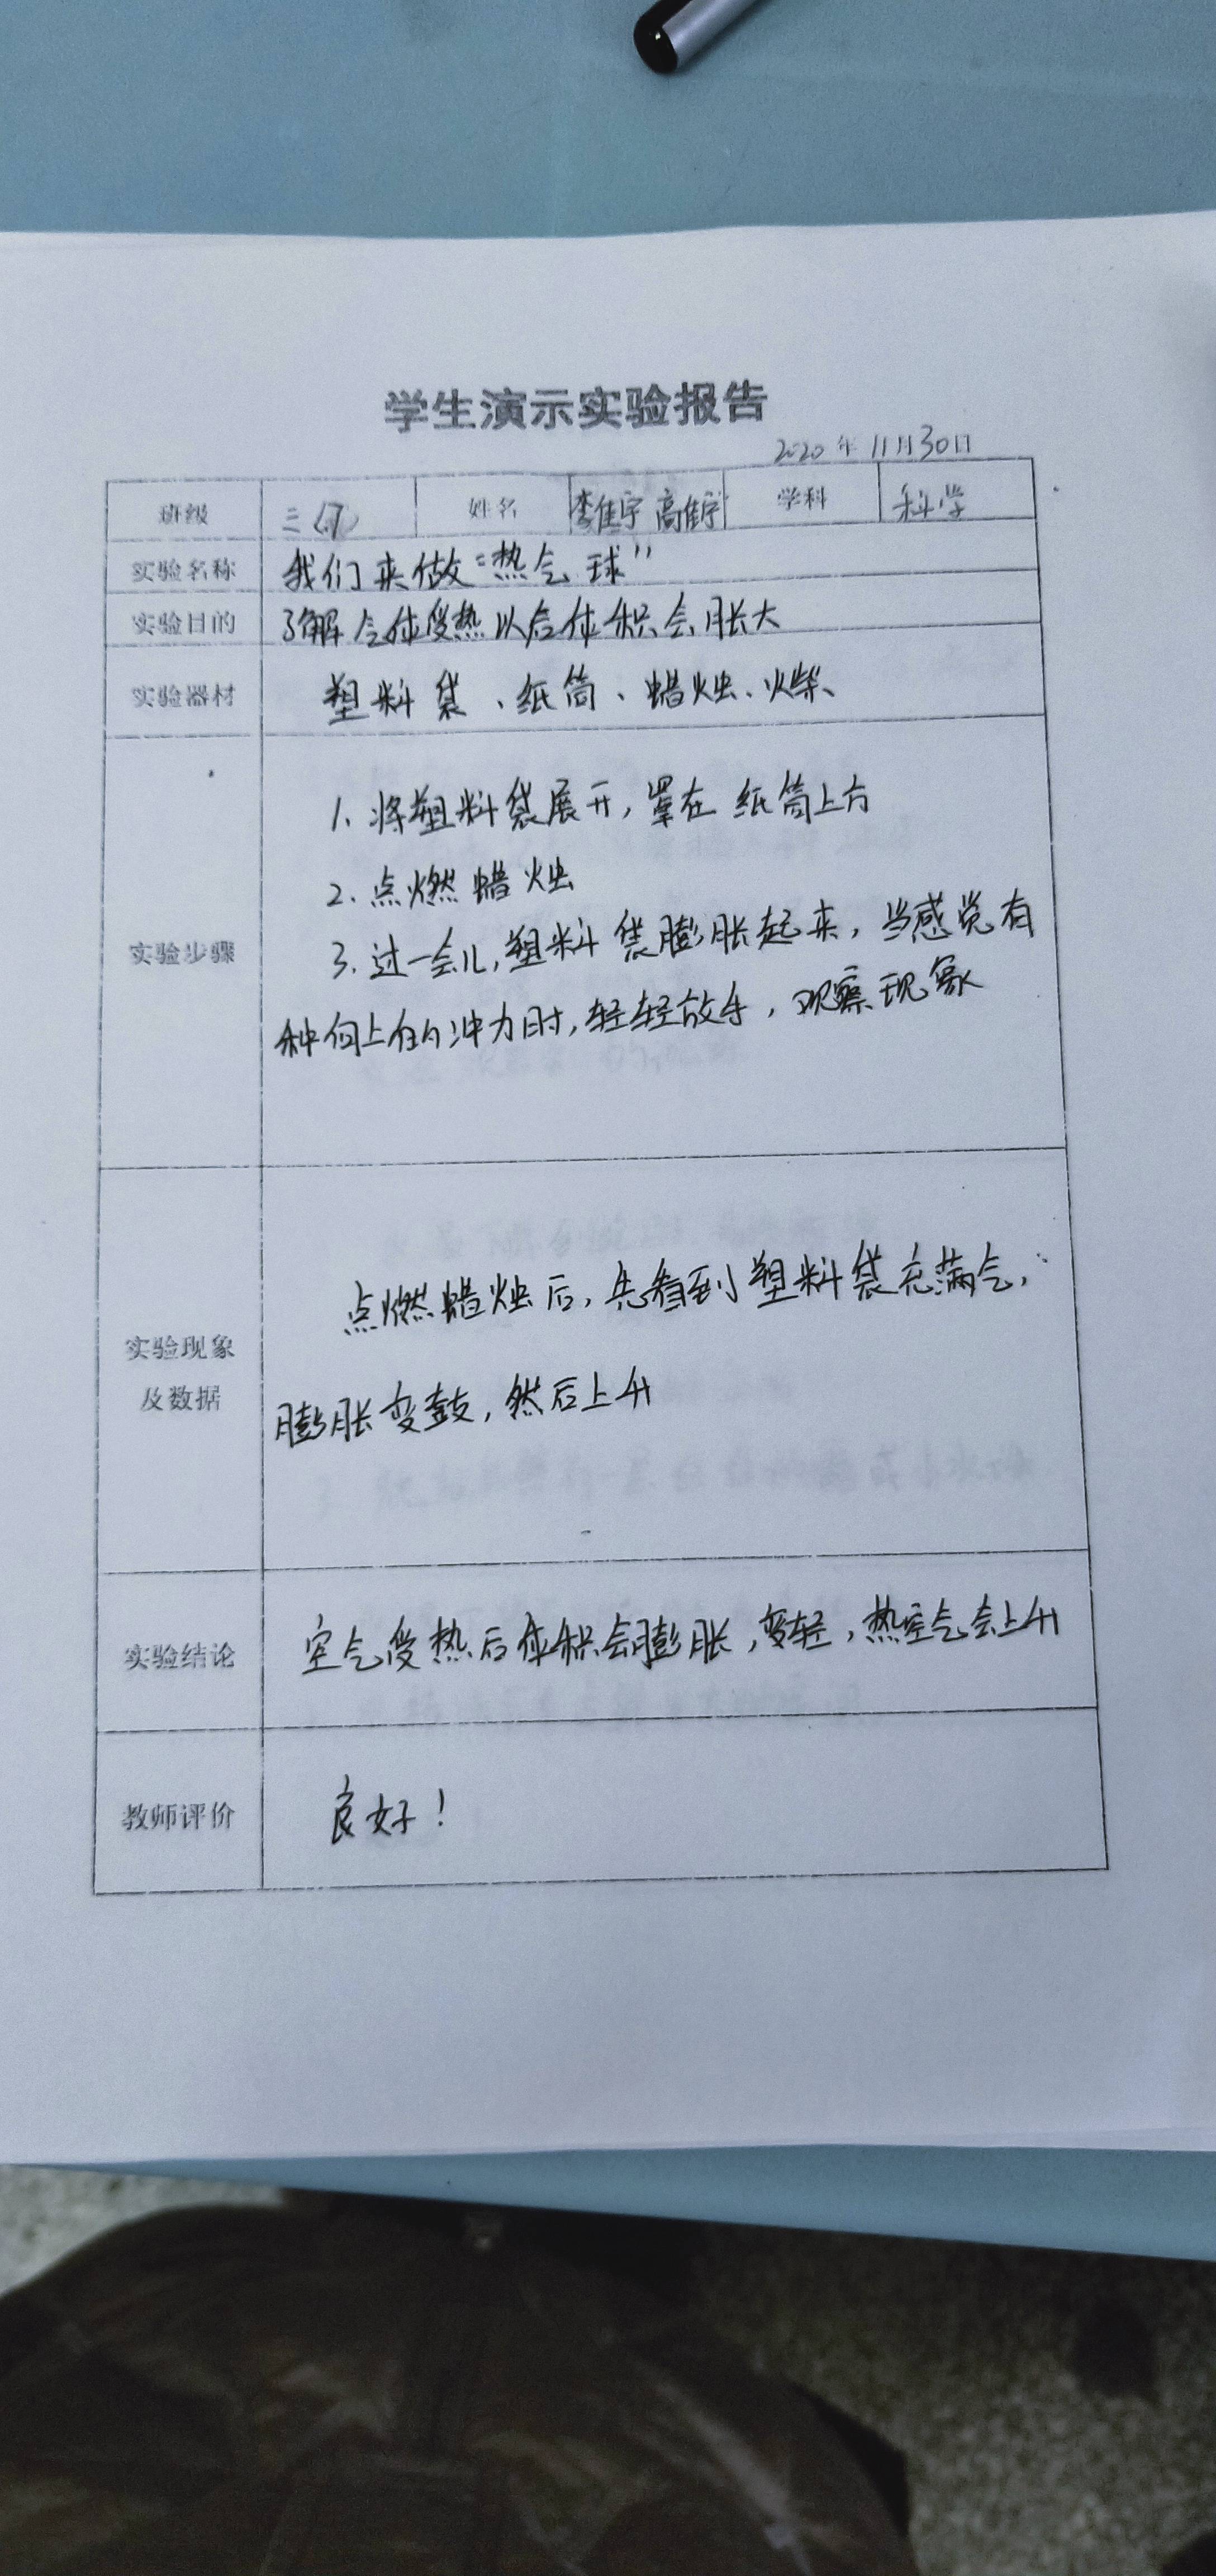 学生演示实验报告
2020年11月30日
班级 三(7) 姓名 李佳宇 高佳宇 学科 科学
实验名称 我们来做“热气球”
实验目的 了解气体受热以后体积会胀大
实验器材 塑料袋、纸筒、蜡烛、火柴、
1、将塑料袋展开,罩在纸筒上方
2、点燃蜡烛
实验步骤 3、过一会儿,塑料袋膨胀起来,当感觉有
种向上的冲力时,轻轻放手,观察现象
点燃蜡烛后,先看到塑料袋充满气,
实验现象
及数据 膨胀变鼓,然后上升
实验结论 空气受热后体积会膨胀,变轻,热空气会上升
教师评价 良好!